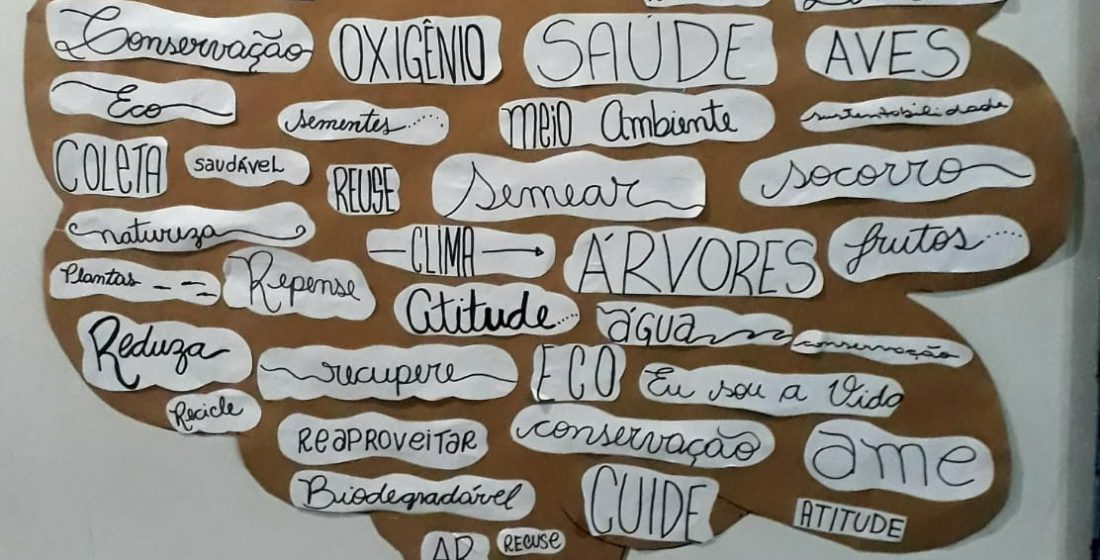 Conservação
OXIGÊNIO
SAÚDE
AVES
Eco
sementes
MEIO Ambiente
sustentabilidade
COLETA
saudÁvel
REUSE
Semear
socorro
natureza
CLIMA
ÁRVORES
frutos
Plantas
Repense
Atitude
água
conservação
Reduza
recupere
ECO
Eu sou a Vida
Recicle
REAPROVEITAR
conservação
ame
Biodegradável
CUIDE
ATITUDE
AR
RECUSE